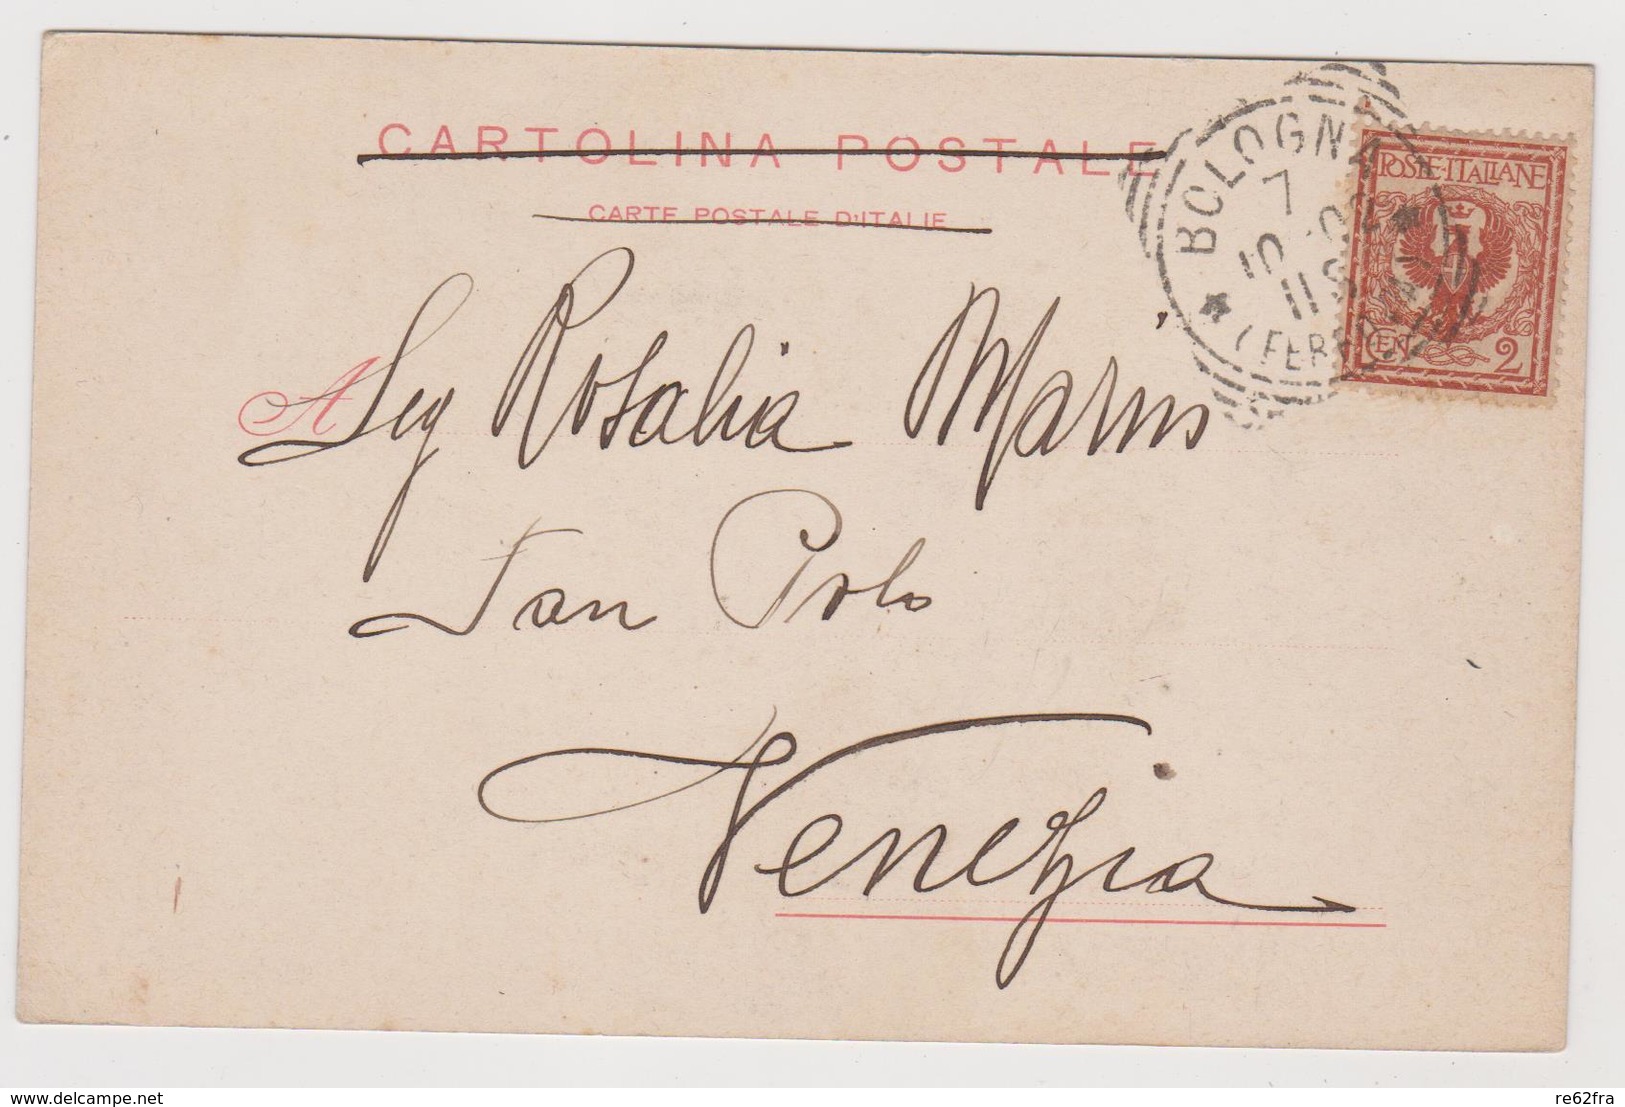 CARTOLINA POSTALE
CARTE POSTALE D'ITALIE
BOLOGNA
7
10 02
11S
(FERROVIA)
POSTE·ITALIANE
CENT 2
A
Sig Rosalia Marin
San Polo
Venezia
delcampe.net
re62fra